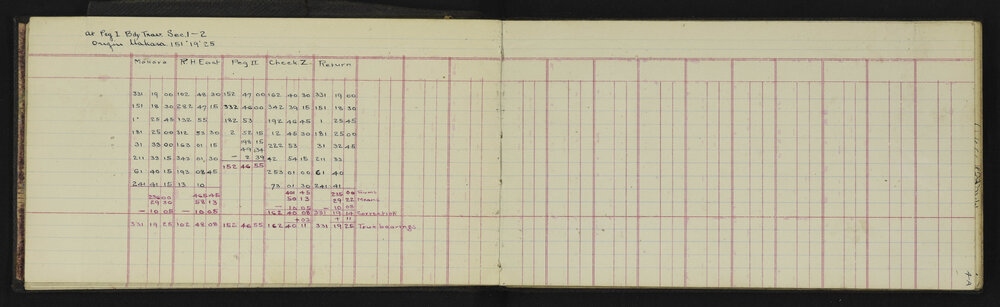 at Peg I Bdy Trav. Sec. 1-2
Origin Makara 151° 19' 25
Makara R.H East Peg II Check Z Return
331 19 00 102 48 30 152 47 00 162 40 30 331 19 00
151 18 30 282 47 15 332 46 00 342 39 15 151 18 30
1° 25 45 132 55 182 53 192 46 45 1 25 45
181 25 00 312 53 30 2 52 15 12 45 30 181 25 00
31 33 00 163 01 15 222 53 31 32 45
211 33 15 343 01 30 – 2 39 42 54 15 211 33
152 46 55
61 40 15 193 08 45 253 01 00 61 40
241 41 15 13 10 73 01 30 241 41
Sums
29 30 58 13 50 13 29 22 Means
– 10 05 – 10 05 – 10 05 – 10 05
162 40 08 331 19 14 Correction
+ 03 + 11
331 19 25 102 48 08 152 46 55 162 40 11 331 19 25 True bearings